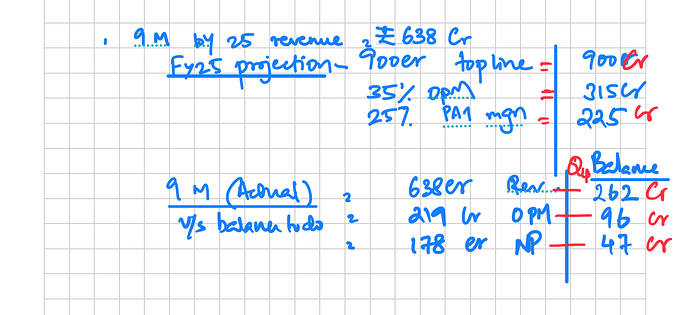 . 9M by 25 revenue = ₹ 638 Cr
FY25 projection - 900cr topline = 900Cr
35% OPM = 315Cr
25% PAT mgn = 225 Cr
Q4 Balance
9M (Actual) = 638cr Rev. - 262 Cr
V/s balance todo = 219 Cr OPM - 96 Cr
= 178 cr NP - 47 Cr